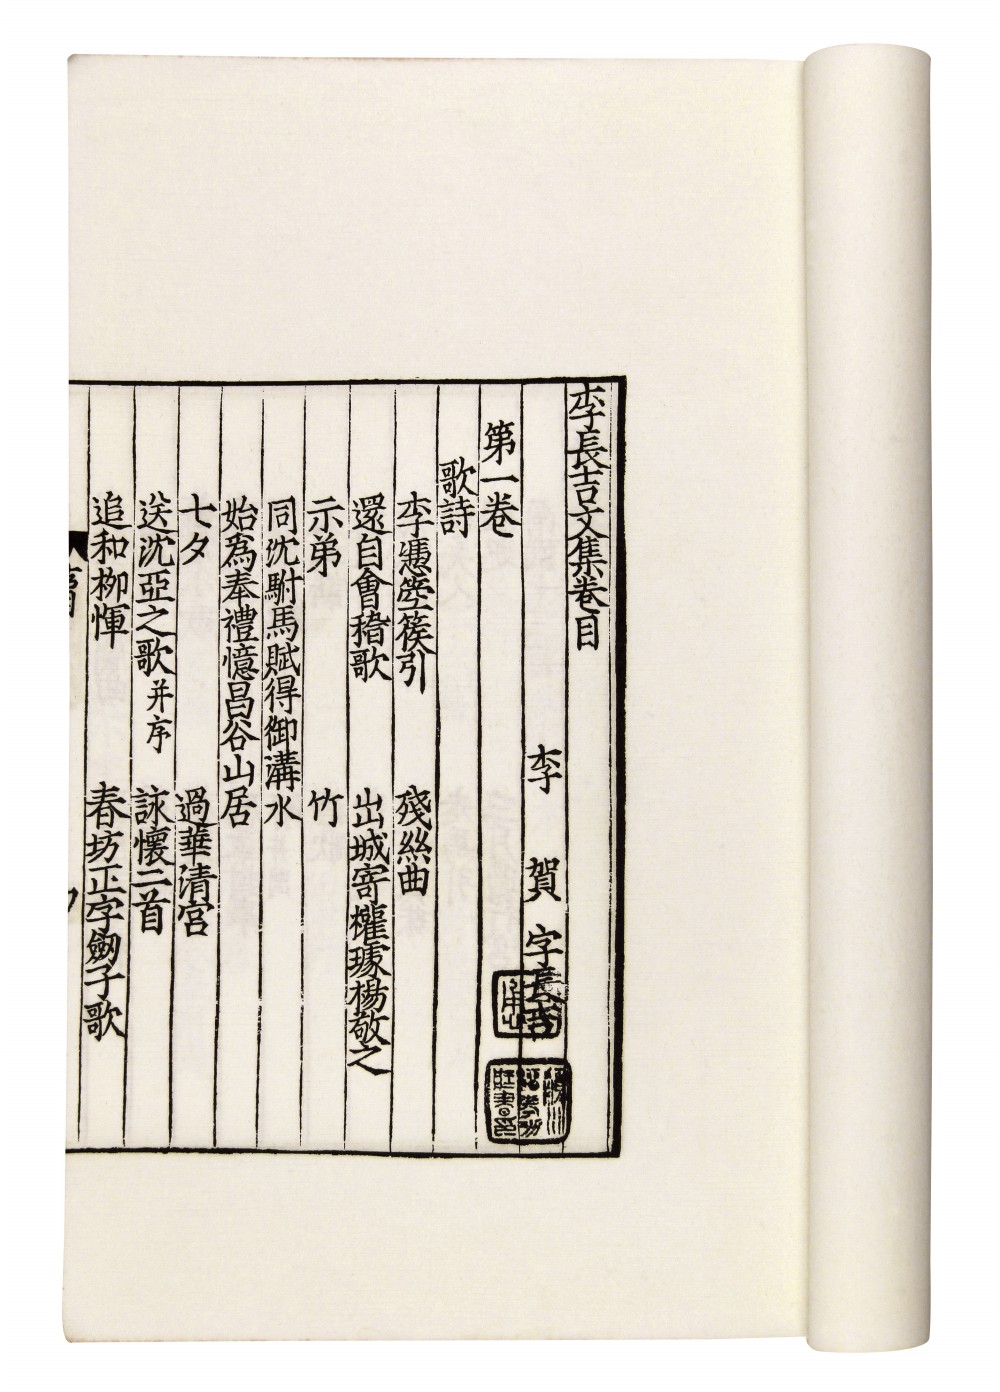 李長吉文集卷目
李賀字長吉
第一卷
歌詩
李憑箜篌引 殘絲曲
還自會稽歌 出城寄權璩楊敬之
示弟 竹
同沈駙馬賦得御溝水
始為奉禮憶昌谷山居
七夕 過華清宮
送沈亞之歌并序 詠懷二首
追和柳惲 春坊正字劒子歌